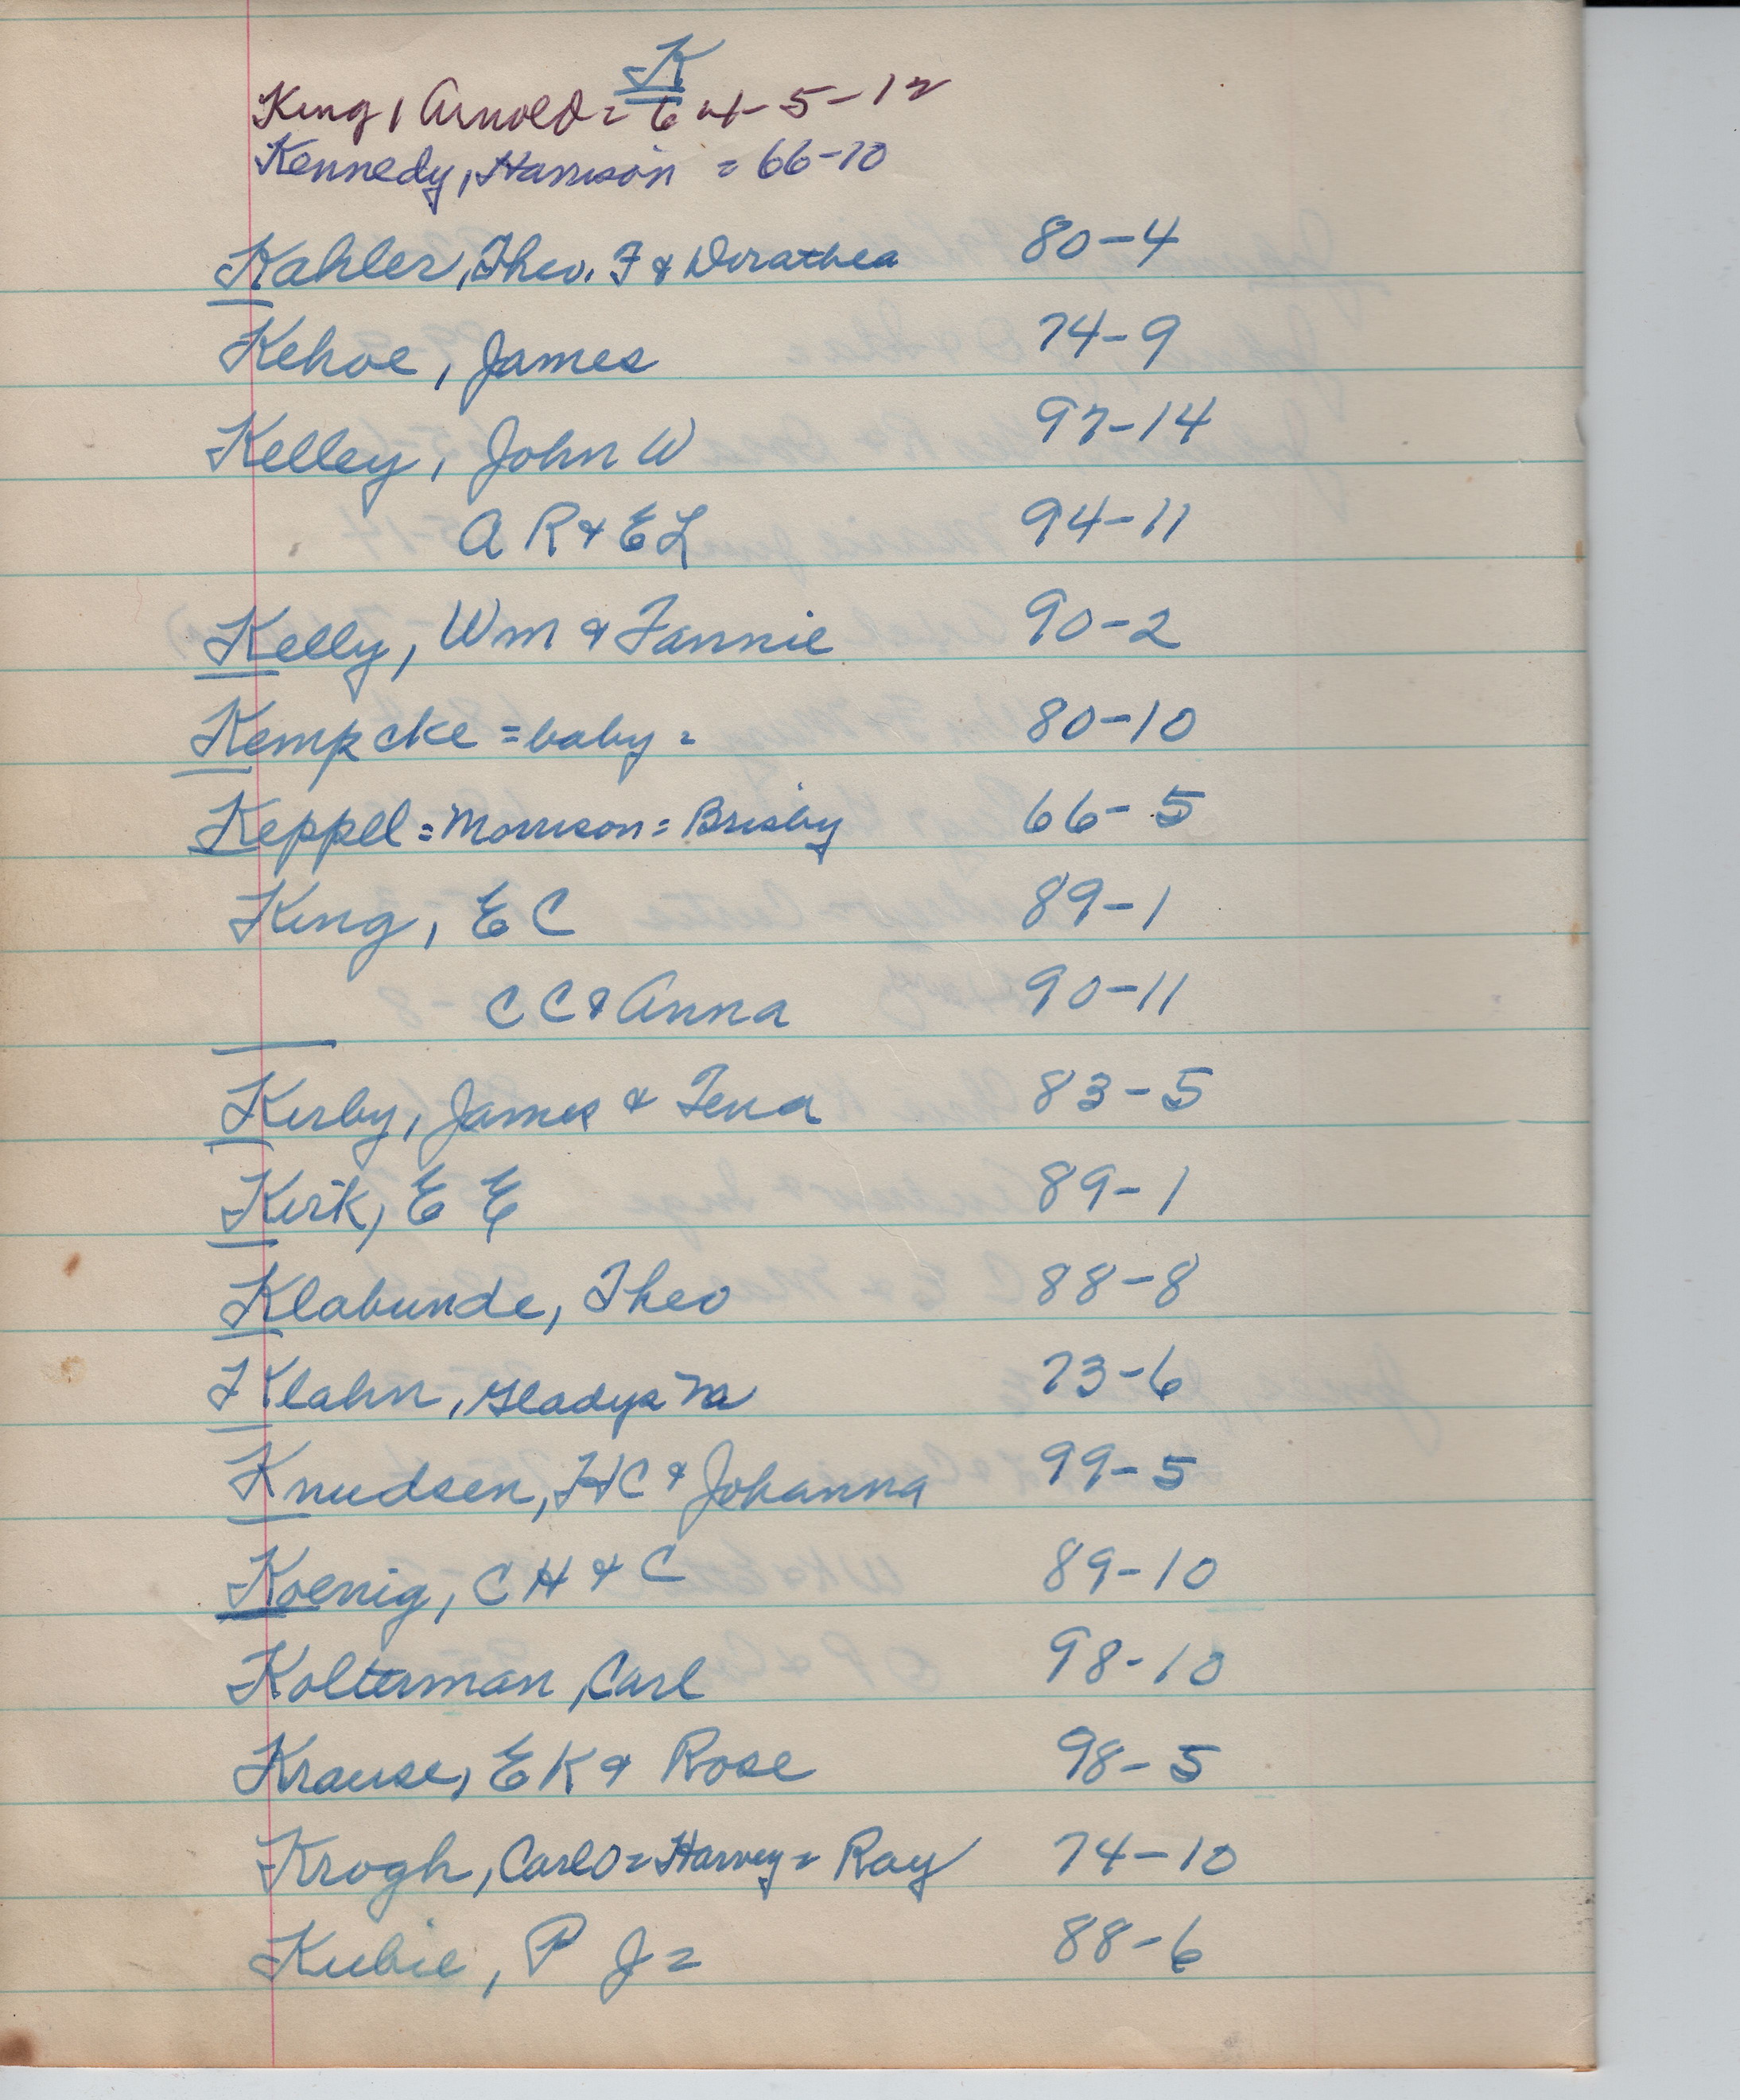 K
King, Arnold = 64-5-12
Kennedy, Harrison = 66-10
Kahler, Theo. F & Dorathea 80-4
Kehoe, James 74-9
Kelley, John W 97-14
A R & E L 94-11
Kelly, Wm & Fannie 90-2
Kempcke = baby = 80-10
Keppel = Morrison = Brisby 66-5
King, E C 89-1
C C & Anna 90-11
Kirby, James & Tena 83-5
Kirk, E E 89-1
Klabunde, Theo 88-8
Klahn, Gladys M 73-6
Knudsen, H C & Johanna 99-5
Koenig, C H & C 89-10
Kolterman, Carl 98-10
Krause, E K & Rose 98-5
Krogh, Carl O = Harvey = Ray 74-10
Kubie, P J = 88-6